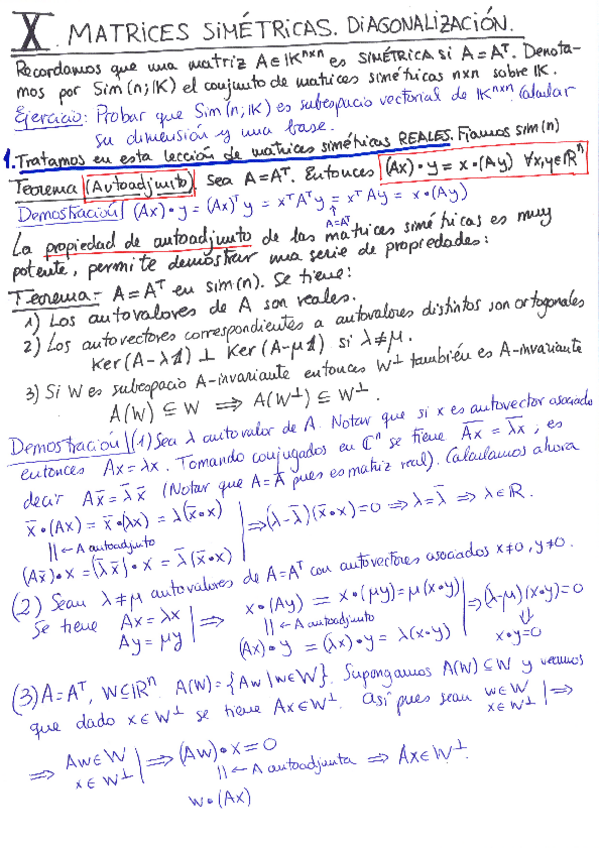 X. MATRICES SIMÉTRICAS. DIAGONALIZACIÓN.
Recordamos que una matriz A∈𝕂ⁿˣⁿ es SIMÉTRICA si A = Aᵀ. Denota-
mos por Sim(n;𝕂) el conjunto de matrices simétricas n×n sobre 𝕂.
Ejercicio: Probar que Sim(n;𝕂) es subespacio vectorial de 𝕂ⁿˣⁿ. Calcular
su dimensión y una base.
1. Tratamos en esta lección de matrices simétricas REALES. Fijamos sim(n)
Teorema (Autoadjunto). Sea A=Aᵀ. Entonces (Ax)•y = x•(Ay) ∀x,y∈ℝⁿ
Demostración | (Ax)•y = (Ax)ᵀy = xᵀAᵀy = xᵀAy = x•(Ay)
↑
A=Aᵀ
La propiedad de autoadjunto de las matrices simétricas es muy
potente, permite demostrar una serie de propiedades:
Teorema:- A=Aᵀ en sim(n). Se tiene:
1) Los autovalores de A son reales.
2) Los autovectores correspondientes a autovalores distintos son ortogonales
Ker(A-λ𝟙) ⊥ Ker(A-μ𝟙) si λ≠μ.
3) Si W es subespacio A-invariante entonces W⊥ también es A-invariante
A(W) ⊆ W ⟹ A(W⊥) ⊆ W⊥.
Demostración | (1) Sea λ autovalor de A. Notar que si x es autovector asociado
entonces Ax=λx. Tomando conjugados en ℂⁿ se tiene A̅x̅ = λ̅x̅, es
decir Ax̅=λ̅x̅ (Notar que A=A̅ pues es matriz real). Calculamos ahora
x̅•(Ax) = x̅•(λx) = λ(x̅•x) | ⟹ (λ-λ̅)(x̅•x)=0 ⟹ λ=λ̅ ⟹ λ∈ℝ.
|| ← A autoadjunto
(Ax̅)•x = (λ̅x̅)•x = λ̅(x̅•x)
(2) Sean λ≠μ autovalores de A=Aᵀ con autovectores asociados x≠0, y≠0.
Se tiene Ax=λx | ⟹ x•(Ay) = x•(μy)=μ(x•y) | ⟹ (λ-μ)(x•y)=0
Ay=μy || ← A autoadjunto ⇓
(Ax)•y = (λx)•y = λ(x•y) x•y=0
(3) A=Aᵀ, W⊆ℝⁿ. A(W)={Aw | w∈W}. Supongamos A(W)⊆W y veamos
que dado x∈W⊥ se tiene Ax∈W⊥. Así pues sean w∈W | ⟹
x∈W⊥
⟹ Aw∈W | ⟹ (Aw)•x=0
x∈W⊥ || ← A autoadjunta ⟹ Ax∈W⊥.
w•(Ax)